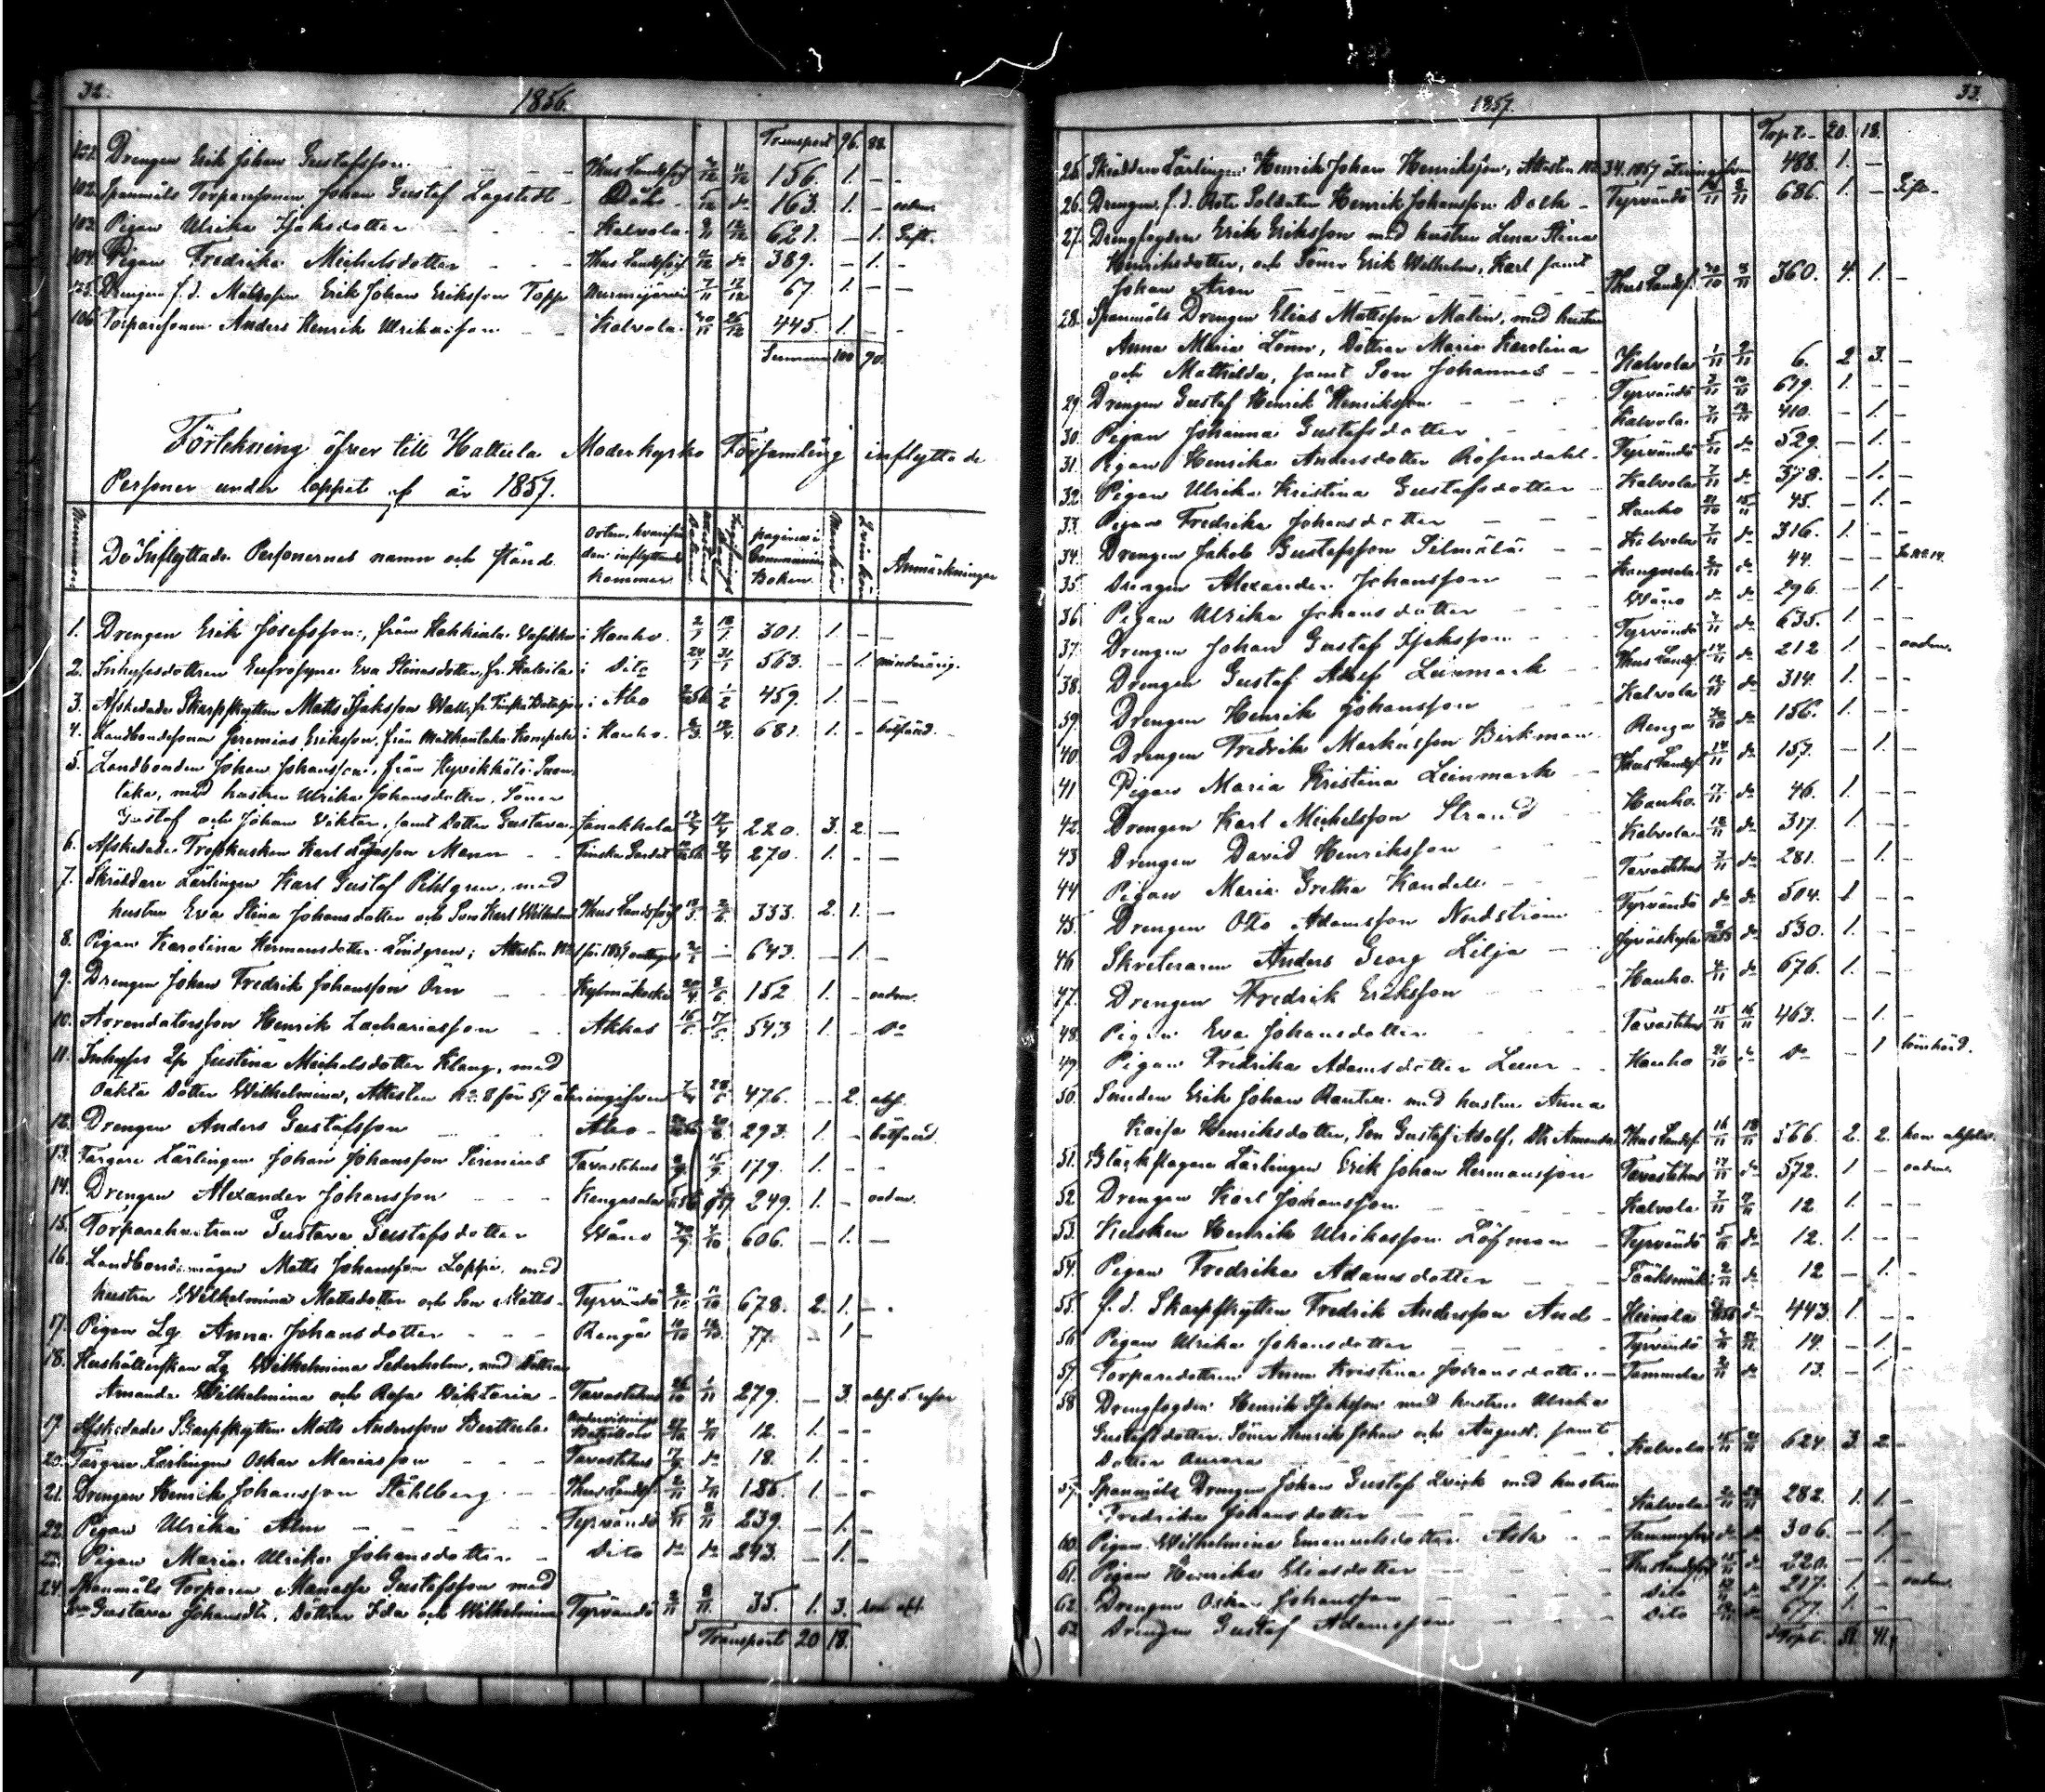 32.
1856.
Transport 96. 88.
101. Drengen Erik Johan Gustafsson - - - Thus Landsförs 4/12 156. 1. -
102. Spanmåls Torparesonen Johan Gustaf Lagstedt - 5/12 do 163. 1. - oadm.
103. Pigan Ulrika Isaksdotter - - - Kalvola 621. - 1. Gift.
104. Pigan Fredrika Michelsdotter - - - Thus Landsförs do 389. - 1. -
105. Drengen f.d. Matrosen Erik Johan Eriksson Topp Nurmijärvi 7/11 67. 1. - -
106. Torparesonen Anders Henrik Ulrikasson - - Kalvola 445. 1. -
Summa 100 90.
Förtekning öfver till Hattula Moderkyrko Församling inflyttade
Personer under loppet af år 1857.
Nummer
De Inflyttade Personernes namn och stånd
Orten, hvarifrån den inflyttande kommer
pagina i Communion Boken
Mankön
Qvinkön
Anmärkningar
1. Drengen Erik Josefsson, från i Hauho. 2/1 18/1 301. 1. - -
2. Inhysesdottren Eufrosyne Eva Stinasdotter, fr. i Dito 24/1 31/1 563. - 1. minderårig.
3. Afskedade Skarpskytten Matts Isaksson Wall, fr. Finska Bataljon i Åbo 1/2 459. 1. - -
4. Landbondesonen Jeremias Eriksson, från i Hauho. 681. 1. - bötfäld.
5. Landbonden Johan Johansson, från
med hustru Ulrika Johansdotter, Söner
Gustaf och Johan Viktor, samt Dotter Gustava, Janakkala 220. 3. 2. -
6. Afskedade Trosskusken Karl Mann - - Finska Gardet 270. 1. - -
7. Skräddare Lärlingen Karl Gustaf Pihlgren, med
hustru Eva Stina Johansdotter och Son Karl Wilhelm Thus Landsförs 333. 2. 1. -
8. Pigan Karolina Hermansdotter Lindgren; Attesten No 1 för 1857 643. - 1. -
9. Drengen Johan Fredrik Johansson Örn - - Kylmäkoski 152 1. - oadm.
10. Arrendatorsson Henrik Zachariasson - - Akkas 543 1. - Do
11. Inhyses Qp Justina Michelsdotter Klang, med
Oäkta Dotter Wilhelmina, Attesten No 8 för 57 återingifven 476. - 2. abs.
12. Drengen Anders Gustafsson - - - Åbo - 293. 1. - bötfäld.
13. Färgare Lärlingen Johan Johansson Sirenius Tavastehus 179. 1. - -
14. Drengen Alexander Johansson - - - Kangasala 249. 1. - oadm.
15. Torparehustrun Gustava Gustafsdotter Wåno 606. - 1. -
16. Landbondemågen Matts Johansson Loppi, med
hustru Wilhelmina Mattsdotter och Son Matts - Tyrväntö 11/10 678. 2. 1. -
17. Pigan Lg Anna Johansdotter - - - Rengo 77. - 1 -
18. Hushållerskan Lg Wilhelmina Sederholm, med Döttrar
Amanda Wilhelmina och Rosa Viktoria - Tavastehus 1/11 279. - 3. abs. 5. resor
19 Afskedade Skarpskytten Matts Andersson Undervisnings Bataillon 12. 1. - -
20. Färgare Lärlingen Oskar Mariasson - - - Tavastehus do 18. 1. - -
21. Drengen Henrik Johansson Ståhlberg - - Thus Landsf. 7/11 186. 1. - -
22. Pigan Ulrika Alm - - - - Tyrväntö 8/11 239. - 1. -
23. Pigan Maria Ulrika Johansdotter - - Dito do do 243. - 1. -
24. Spanmåls Torparen Manasse Gustafsson med
Gustava Johansdr, Döttrar Ida och Wilhelmina Tyrväntö 8/11 35. 1. 3.
Transport 20 18.
1857.
33.
Trpt. - 20. 18.
25. Skräddare Lärlingen Henrik Johan Henriksson, Attesten No 34. 1857 återingifven 488. 1. -
26. Drengen, f.d. Rote Soldaten Henrik Johansson Dolk - Tyrväntö 8/11 686. 1. - Gift.
27. Drengfogden Erik Eriksson med hustru Lena Stina
Henriksdotter, och Söner Erik Wilhelm, Karl samt
Johan Aron - - - - Thus Landsf. 360. 4. 1. -
28. Spanmåls Drengen Elias Mattsson Malin, med hustru
Anna Maria Lönn, Döttrar Maria Karolina
och Mathilda, samt Son Johannes - - Kalvola 1/11 6. 2 3. -
29. Drengen Gustaf Henrik Henriksson - - - Tyrväntö 7/11 10/11 679. 1. - -
30. Pigan Johanna Gustafsdotter - - - Kalvola 7/11 410. - 1. -
31. Pigan Henrika Andersdotter Rosendahl - Tyrväntö 5/11 do 529. - 1. -
32. Pigan Ulrika Kristina Gustafsdotter - Kalvola 7/11 do 378. - 1. -
33. Pigan Fredrika Johansdotter - - Hauho 15/11 45. - 1. -
34. Drengen Jakob Gustafsson Silmälä - - Kalvola 7/11 do 316. 1. - -
35. Drengen Alexander Johansson - - Kangasala do 44. - - Se No 14.
36. Pigan Ulrika Johansdotter - - - Wåno do do 296. - 1. -
37. Drengen Johan Gustaf Isaksson - - - Tyrväntö do 635. 1. - -
38. Drengen Gustaf Adolf Leinmark - Thus Landsf. 14/11 do 212 1. - oadm.
39. Drengen Henrik Johansson - - - Kalvola do 314. 1. - -
40. Drengen Fredrik Markusson Birkman Rengo do 156. 1. - -
41 Pigan Maria Kristina Leinmark - - Thus Landsf. 14/11 do 157. - 1. -
42. Drengen Karl Michelsson Strand - - Hauho. 17/11 do 46. 1. - -
43 Drengen David Henriksson - - - Kalvola do 317. 1. - -
44 Pigan Maria Gretha Kandell - - - Tavastehus 7/11 do 281. - 1. -
45. Drengen Otto Adamsson Nordström Tyrväntö do do 504. 1 - -
46 Skreteraren Anders Georg Lilja - - Jyväskylä do 530. 1. - -
47. Drengen Fredrik Eriksson - - - Hauho. 4/11 do 676. 1. - -
48. Pigan Eva Johansdotter - - - Tavastehus 15/11 16/11 463. - 1. -
49. Pigan Fredrika Adamsdotter - - Hauho 21/10 Do - 1
50. Smeden Erik Johan med hustru Anna
Kaisa Henriksdotter, Son Gustaf Adolf, Dr Amanda Thus Landsf. 16/11 18/11 566. 2. 2.
51. Bläckslagare Lärlingen Erik Johan Hermansson Tavastehus 17/11 do 572. 1 - oadm.
52 Drengen Karl Johansson - - - Kalvola 7/11 12 1. - -
53. Kusken Henrik Ulrikasson Löfman - Tyrväntö 5/11 do 12. 1. - -
54. Pigan Fredrika Adamsdotter - - Sääksmäki 2/11 do 12 - 1. -
55. f.d. Skarpskytten Fredrik Andersson And - Heinola do 443 1. - -
56 Pigan Ulrika Johansdotter - - - Tyrväntö 14. - 1. -
57. Torparedottren Anna Kristina Johansdotter - Tammela do 13. - 1. -
58 Drengfogden Henrik Isaksson med hustru Ulrika
Gustafsdotter, Söner Henrik Johan och August, samt
Dotter Aurora - - - - Kalvola 624. 3. 2. -
59. Spanmåls Drengen Johan Gustaf Qvick med hustru
Fredrika Johansdotter - - - Kalvola 282. 1. 1. -
60. Pigan Wilhelmina Emanuelsdotter - - do do 306. - 1. -
61. Pigan Henrika Eliasdotter - - - Thus Landsförs do 220. - 1. -
62. Drengen Oskar Johansson - - - Dito do 217. 1. - oadm.
63. Drengen Gustaf Adamsson - - - Dito do 677. 1. -
Trpt. 51. 41.